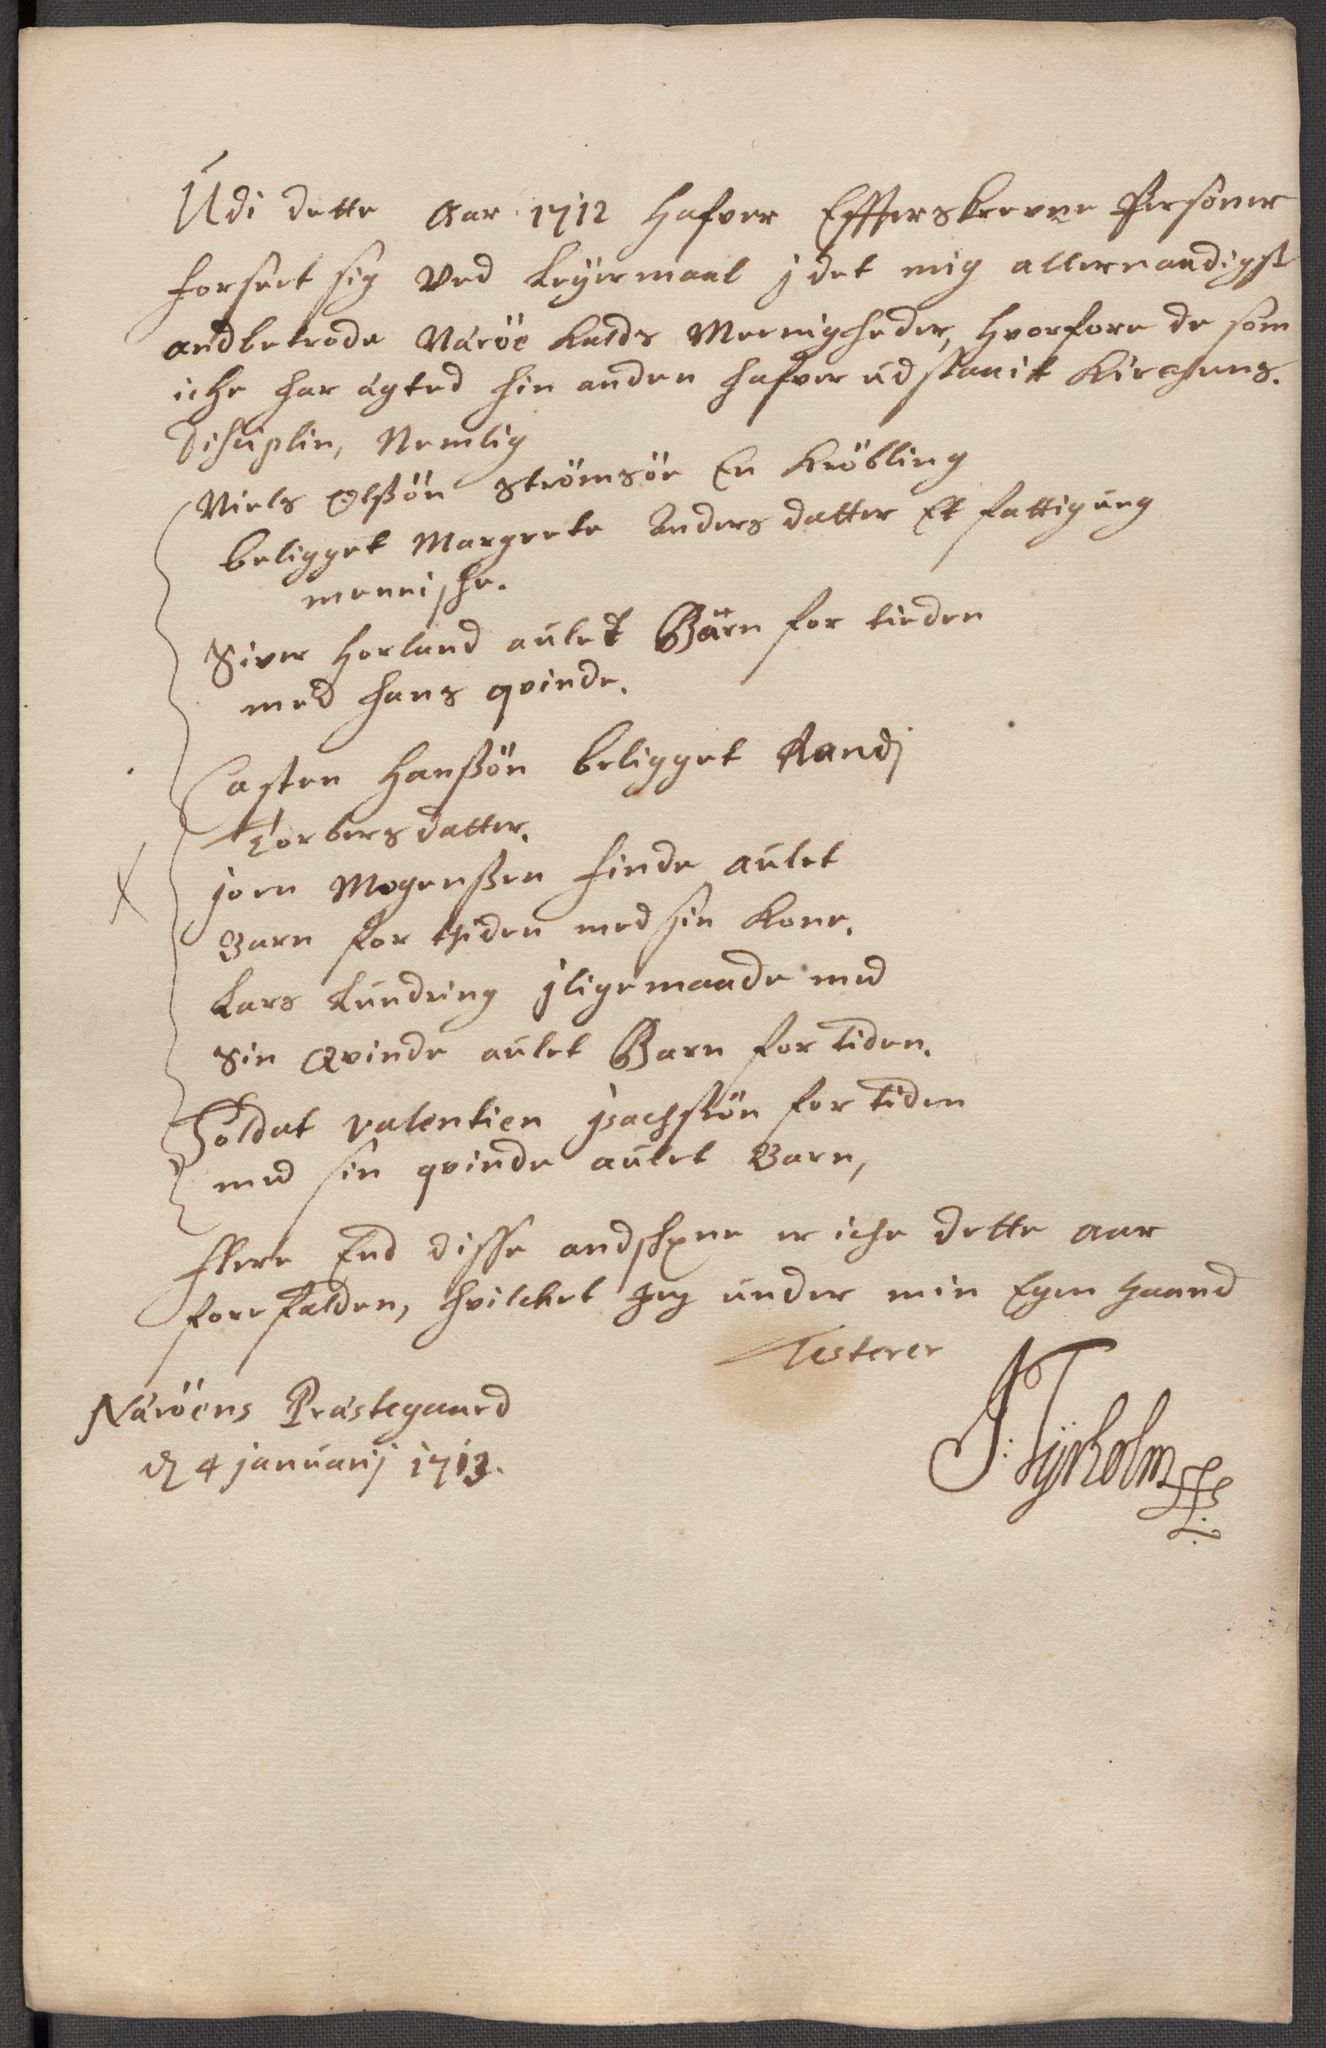 Udi dette Aar 1712 Hafver Effterskrevne Personer
forseet sig Ved Leyermaal j det mig allernaadigst
andbetrode Näröe Kalds Meenigheder, Hvorfore de som
iche har ägted hin anden hafver udstaait Kirchens
Disciplin, Nemlig
Niels Olßön Strömsöe En Kröbling
beligget Margrete Anders datter Et fattig ung
menniske.
Siver Horland aulet Bärn for tieden
med hans qvinde.
Casten Hanßön beligget Randj
Torbersdatter.
joen Mogenßen finde aulet
Barn for tiden med sin Kone.
Lars Lundring jligemaade med
Sin Qvinde aulet Barn for Tiden.
Soldat valentien jsachßön for Tiden
med sin qvinde aulet Barn,
flere End disse er iche dette aar
forefalden, hvilchet Jeg under min Egen Haand
Testerer
Näröens Prästegaard
d 4 januarij 1713.
J: Tyrholm